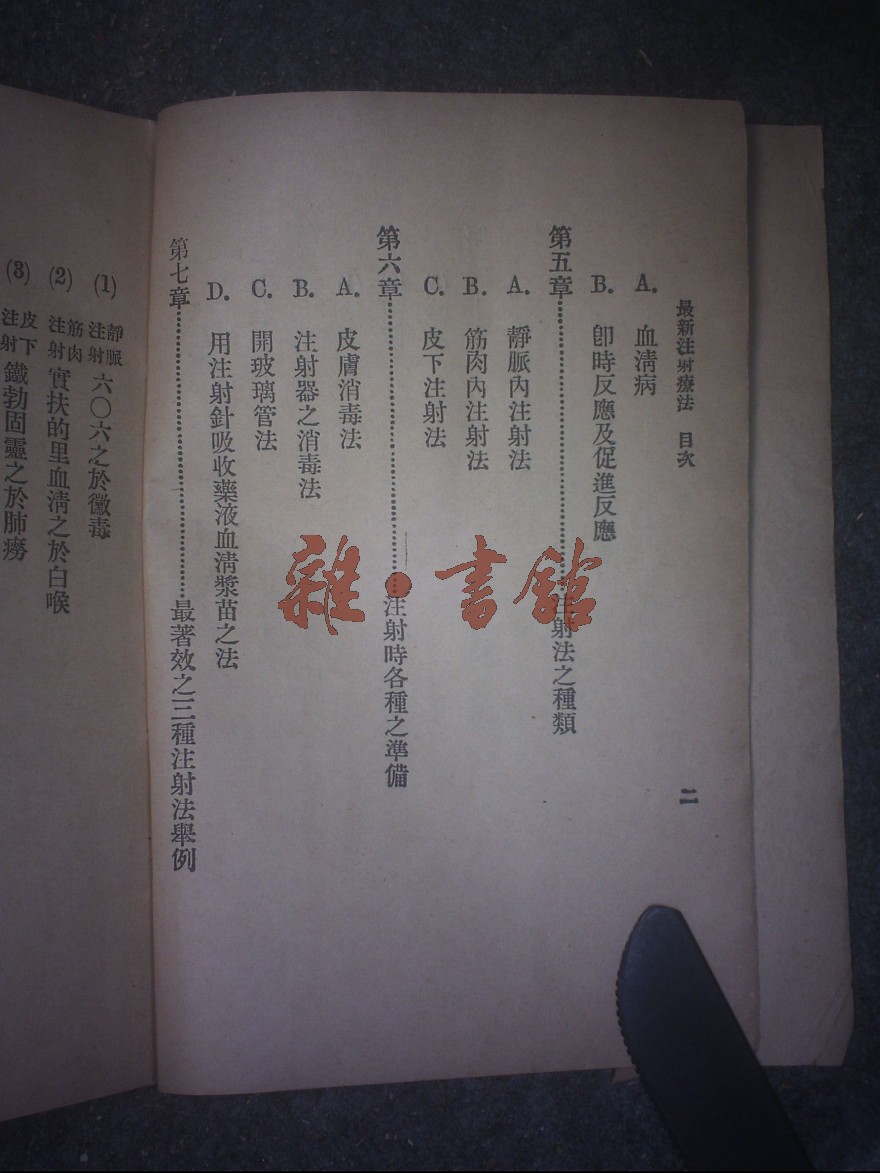 最新注射療法 目次 二
A. 血淸病
B. 卽時反應及促進反應
第五章…………注射法之種類
A. 靜脈內注射法
B. 筋肉內注射法
C. 皮下注射法
第六章…………注射時各種之準備
A. 皮膚消毒法
B. 注射器之消毒法
C. 開玻璃管法
D. 用注射針吸收藥液血淸漿苗之法
第七章…………最著效之三種注射法舉例
(1) 靜脈注射 六〇六之於黴毒
(2) 筋肉注射 實扶的里血淸之於白喉
(3) 皮下注射 鐵勃固靈之於肺癆
雜·書館